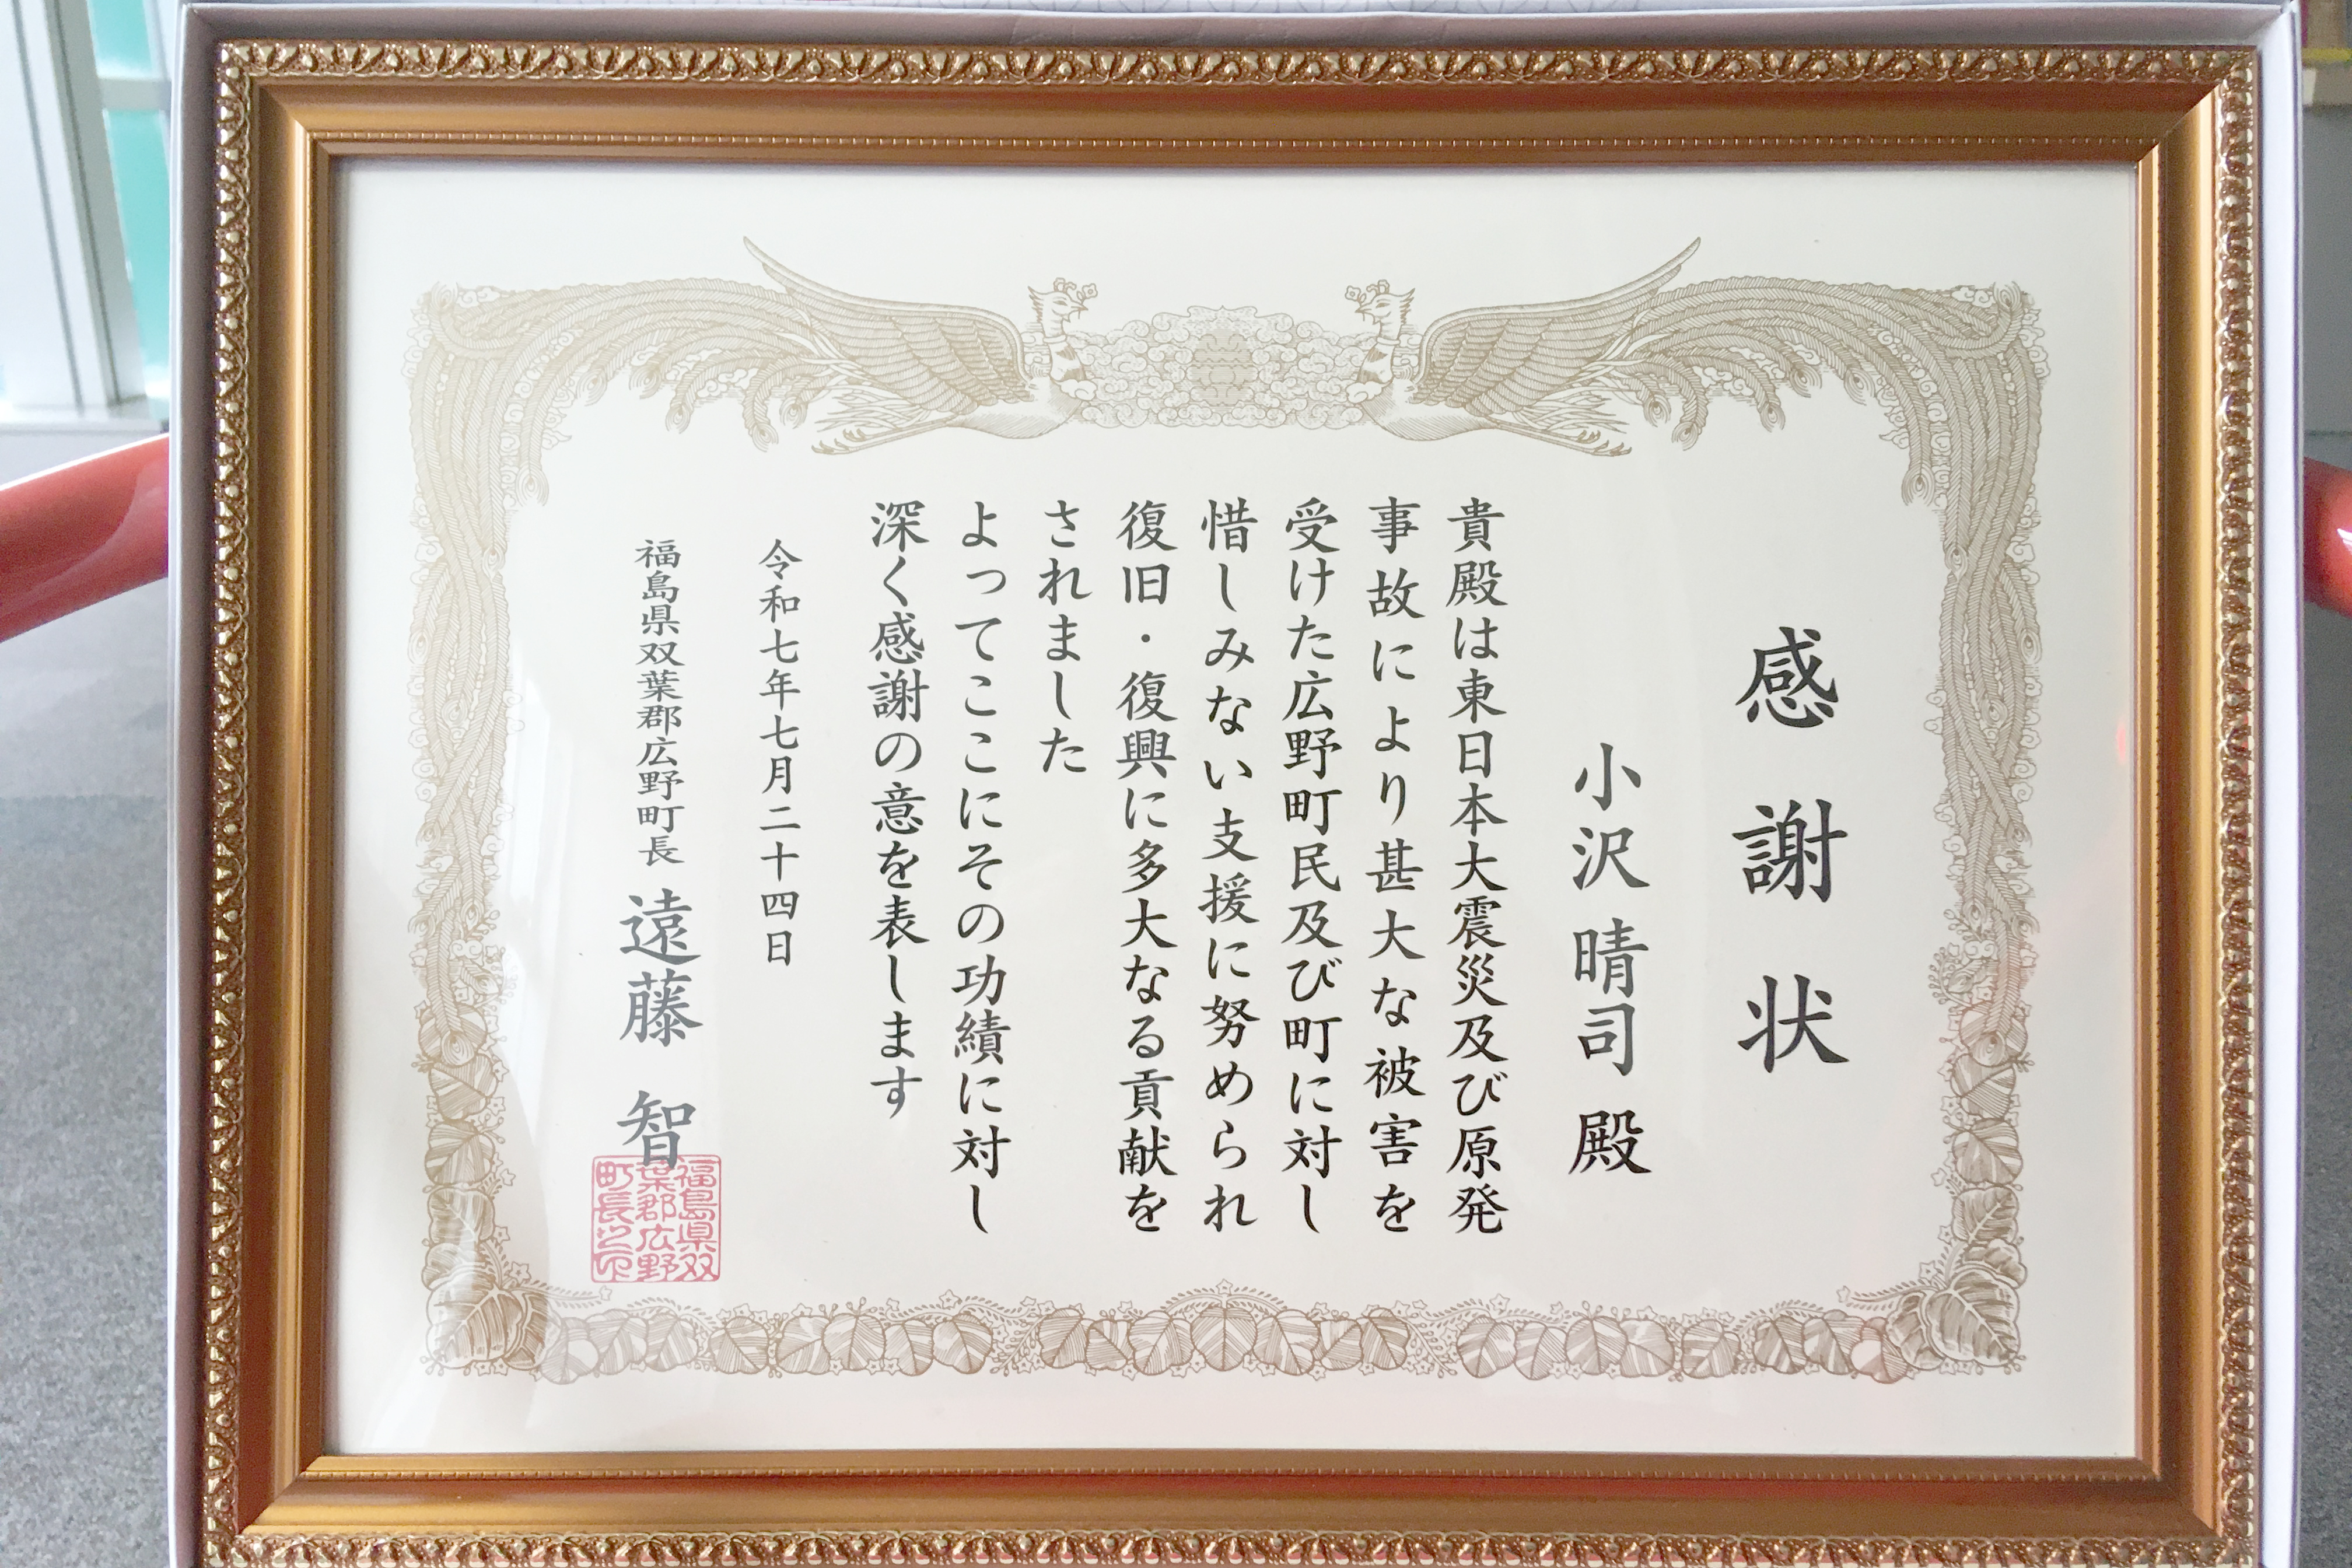 感謝状
小沢晴司 殿
貴殿は東日本大震災及び原発
事故により甚大な被害を
受けた広野町民及び町に対し
惜しみない支援に努められ
復旧・復興に多大なる貢献を
されました
よってここにその功績に対し
深く感謝の意を表します
令和七年七月二十四日
福島県双葉郡広野町長 遠藤 智
福島県双
葉郡広野
町長之印